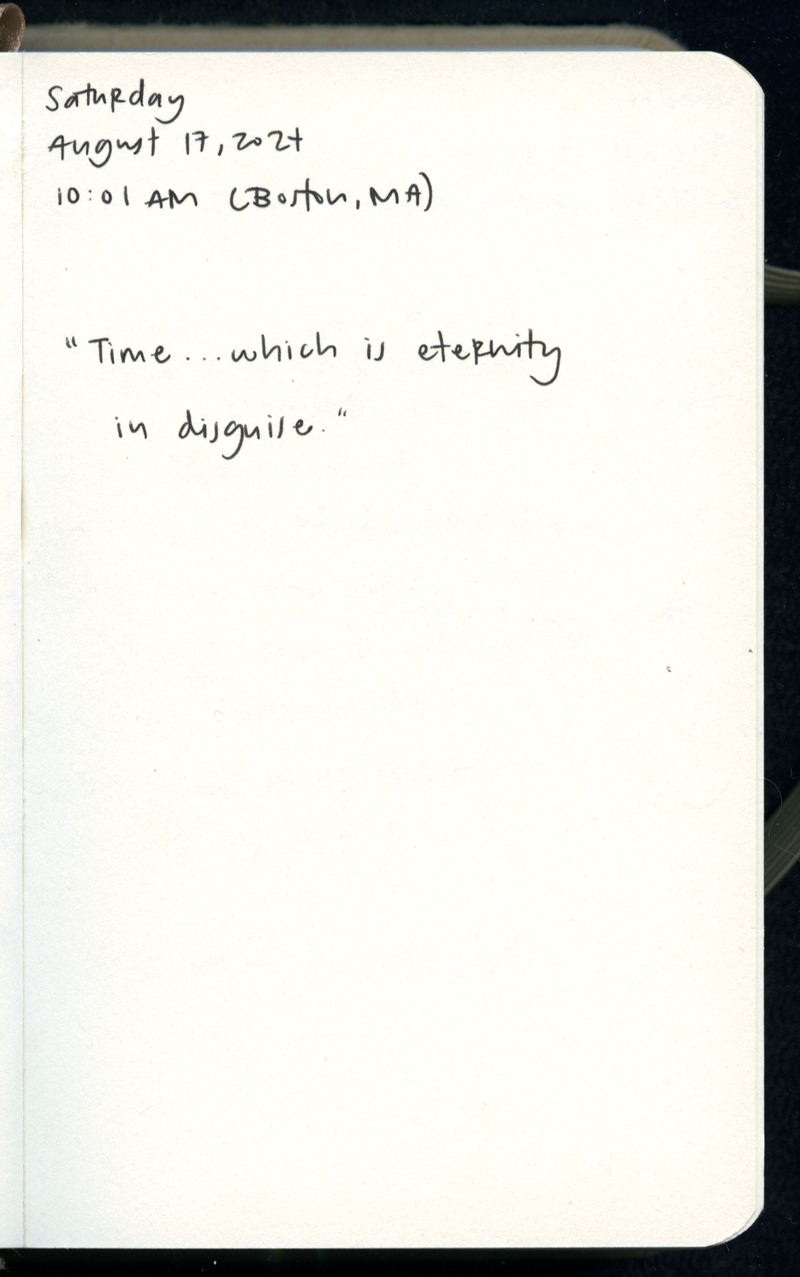 Saturday
August 17, 2024
10:01 AM (Boston, MA)
"Time...which is eternity
in disguise."